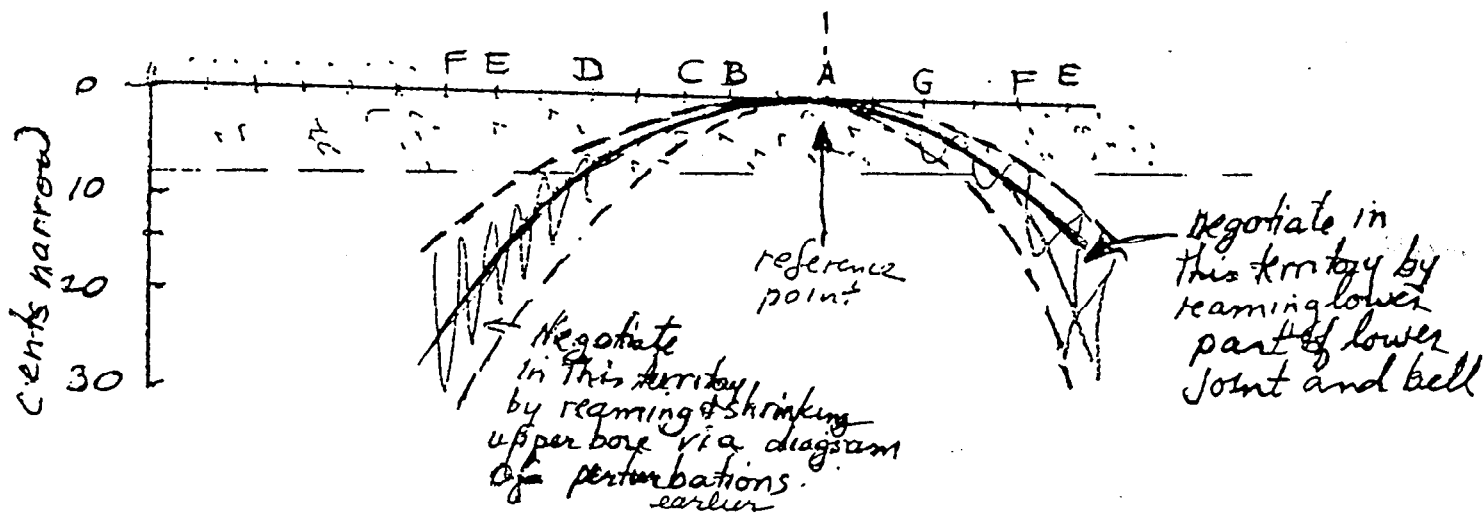 F E D C B A G F E
0
10
20
30
cents narrow
reference
point
Negotiate
in this territoy
by reaming & shrinking
upper bore via diagram
of perturbations.
earlier
negotiate in
this territoy by
reaming lower
part of lower
joint and bell